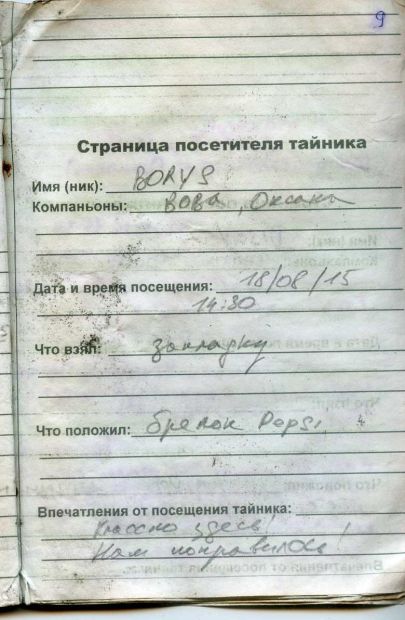 9
Страница посетителя тайника
Имя (ник): BORYS
Компаньоны: Вова, Оксана
Дата и время посещения: 18/08/15
14:30
Что взял: закладку
Что положил: брелок Pepsi
Впечатления от посещения тайника:
Классно здесь!
Нам понравилось!